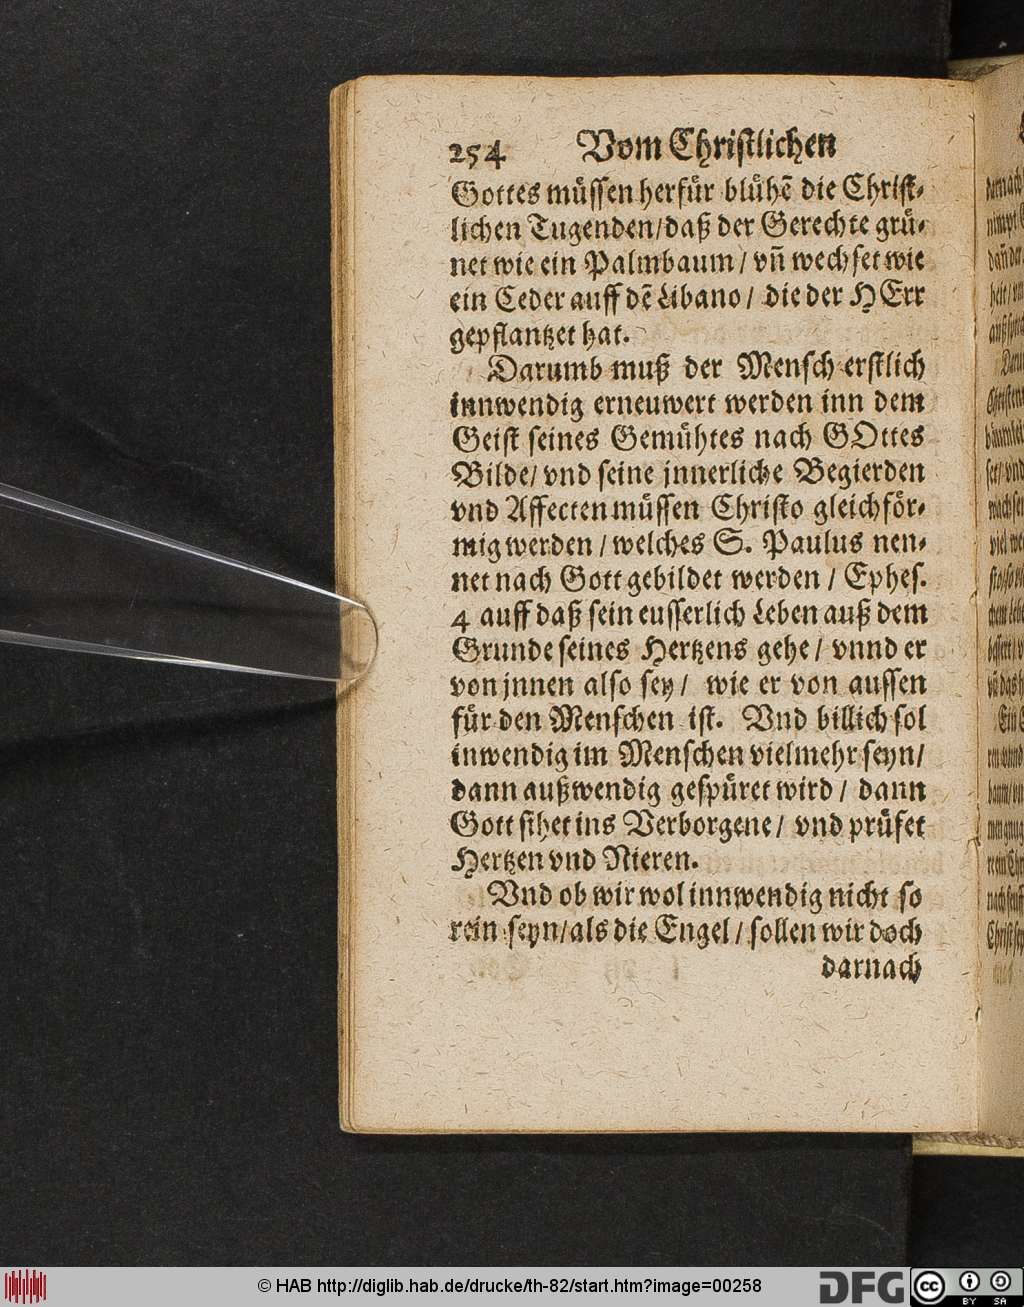 254 Vom Christlichen
Gottes müssen herfür blühē die Christ-
lichen Tugenden/daß der Gerechte grü-
net wie ein Palmbaum/ vñ wechset wie
ein Ceder auff dē Libano/ die der HErr
gepflantzet hat.
Darumb muß der Mensch erstlich
innwendig erneuwert werden inn dem
Geist seines Gemühtes nach GOttes
Bilde/ vnd seine jnnerliche Begierden
vnd Affecten müssen Christo gleichför-
mig werden/welches S. Paulus nen-
net nach Gott gebildet werden/ Ephes.
4 auff daß sein eusserlich Leben auß dem
Grunde seines Hertzens gehe/ vnnd er
von jnnen also sey/ wie er von aussen
für den Menschen ist. Vnd billich sol
inwendig im Menschen vielmehr seyn/
dann außwendig gespüret wird/ dann
Gott sihet ins Verborgene/ vnd prüfet
Hertzen vnd Nieren.
Vnd ob wir wol innwendig nicht so
rein seyn/als die Engel/ sollen wir doch
darnach
© HAB http://diglib.hab.de/drucke/th-82/start.htm?image=00258
DFG
cc BY SA